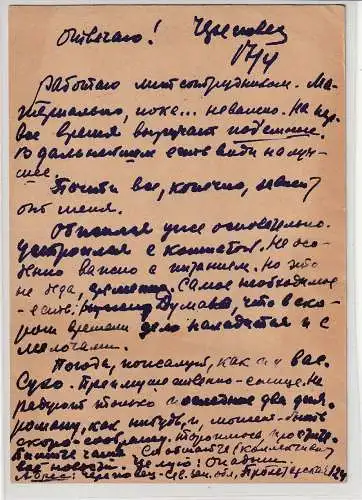 Отвечаю! Череповец
17/4
Работаю литсотрудником. Ма-
териально, пока... неважно. На пер-
вое время выручают
В дальнейшем есть виды на луч-
шее.
Почти все, конечно, зависит
от меня.
Обжился уже основательно.
Устроился с комнатой. Не осо-
бенно важно с питанием. Но это
не беда, Самое необходимое
- есть. Думаю, что в ско-
ром времени дело наладится и с
мелочами.
Погода, пожалуй, как и у вас.
Сухо. Преимущественно - солнце. Не
радуют только последние два дня.
как нибудь и, может быть
скоро - сообщу.
Сообщайте (коллективно)
все новости. Целую!
Адрес: Череповец - Пролетарская